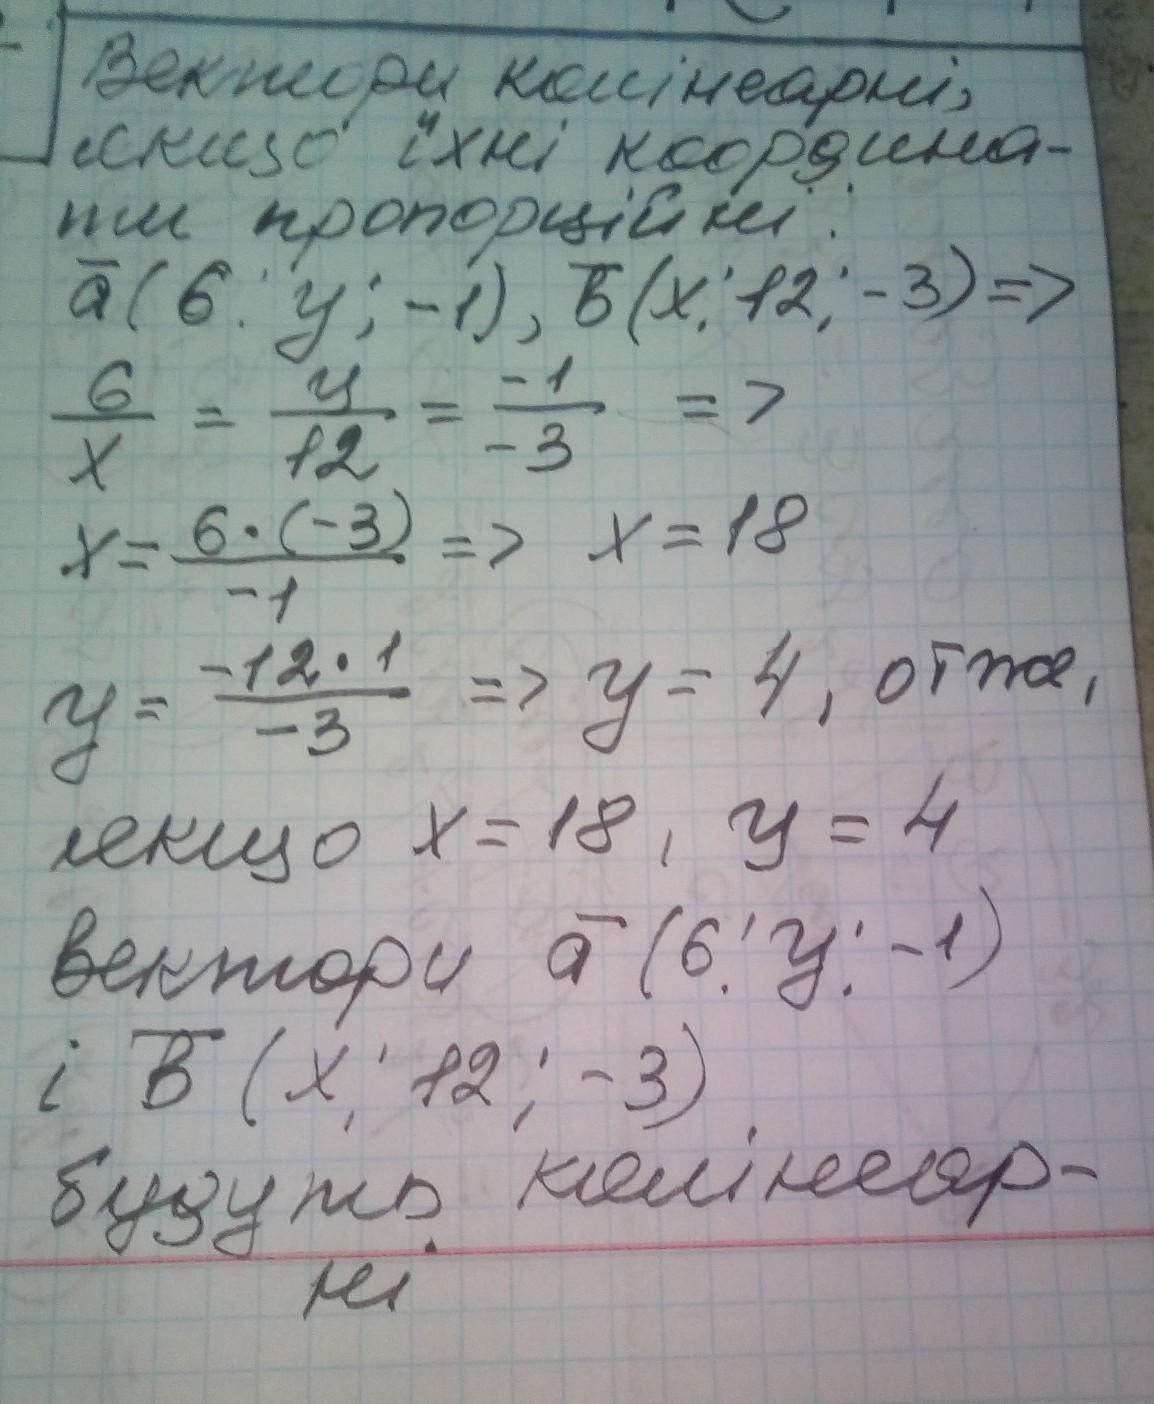 Вектори колінеарні,
якщо їхні координа-
ти пропорційні:
a̅(6; y; -1), b̅(x; 12; -3) =>
6/x = y/12 = -1/-3 =>
x = 6·(-3)/-1 => x = 18
y = -12·1/-3 => y = 4, отже,
якщо x = 18, y = 4
вектори a̅(6; y; -1)
і b̅(x; 12; -3)
будуть колінеар-
ні